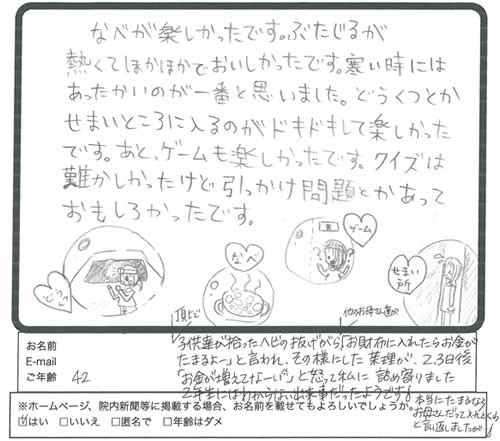 なべが楽しかったです。ぶたじるが
熱くてほかほかでおいしかったです。寒い時には
あったかいのが一番と思いました。どうくつとか
せまいところに入るのがドキドキして楽しかった
です。あと、ゲームも楽しかったです。クイズは
難かしかったけど引っかけ問題とかあって
おもしろかったです。
どうくつ
なべ
ゲーム
せまい
所
頂上で
他のお母さん達が
お名前
E-mail
ご年齢 42
子供達が拾ったヘビの抜けがら「お財布に入れたらお金が
たまるよー」と言われ、その様にした 2.3日後
「お金が増えてなーい」と怒って私に詰め寄りました
2年生にはわからない出来事だったようです!
※ホームページ、院内新聞等に掲載する場合、お名前を載せてもよろしいでしょうか。
☑はい □いいえ □匿名で □年齢はダメ
本当にたまるなら
お母さんだって
と言い返しましたが